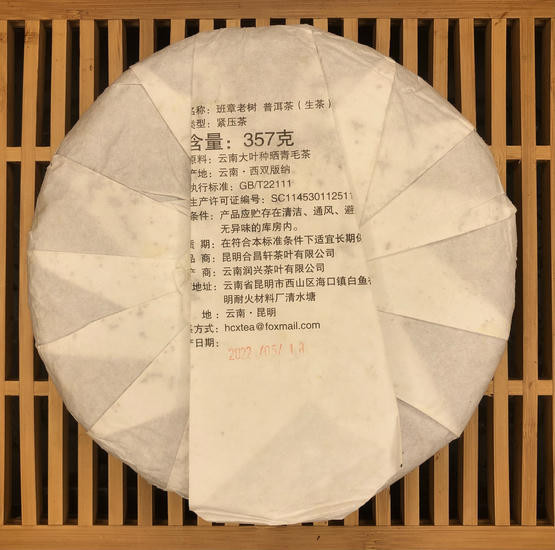 名称：班章老树 普洱茶（生茶）
类型：紧压茶
含量：357克
原料：云南大叶种晒青毛茶
产地：云南·西双版纳
执行标准：GB/T22111
生产许可证编号：SC114530112511
条件：产品应贮存在清洁、通风、避
无异味的库房内。
质 期：在符合本标准条件下适宜长期保
品 商：昆明合昌轩茶叶有限公司
产 商：云南润兴茶叶有限公司
地址：云南省昆明市西山区海口镇白鱼
明耐火材料厂清水塘
地：云南·昆明
系方式：hcxtea@foxmail.com
产日期：
2022/05/1